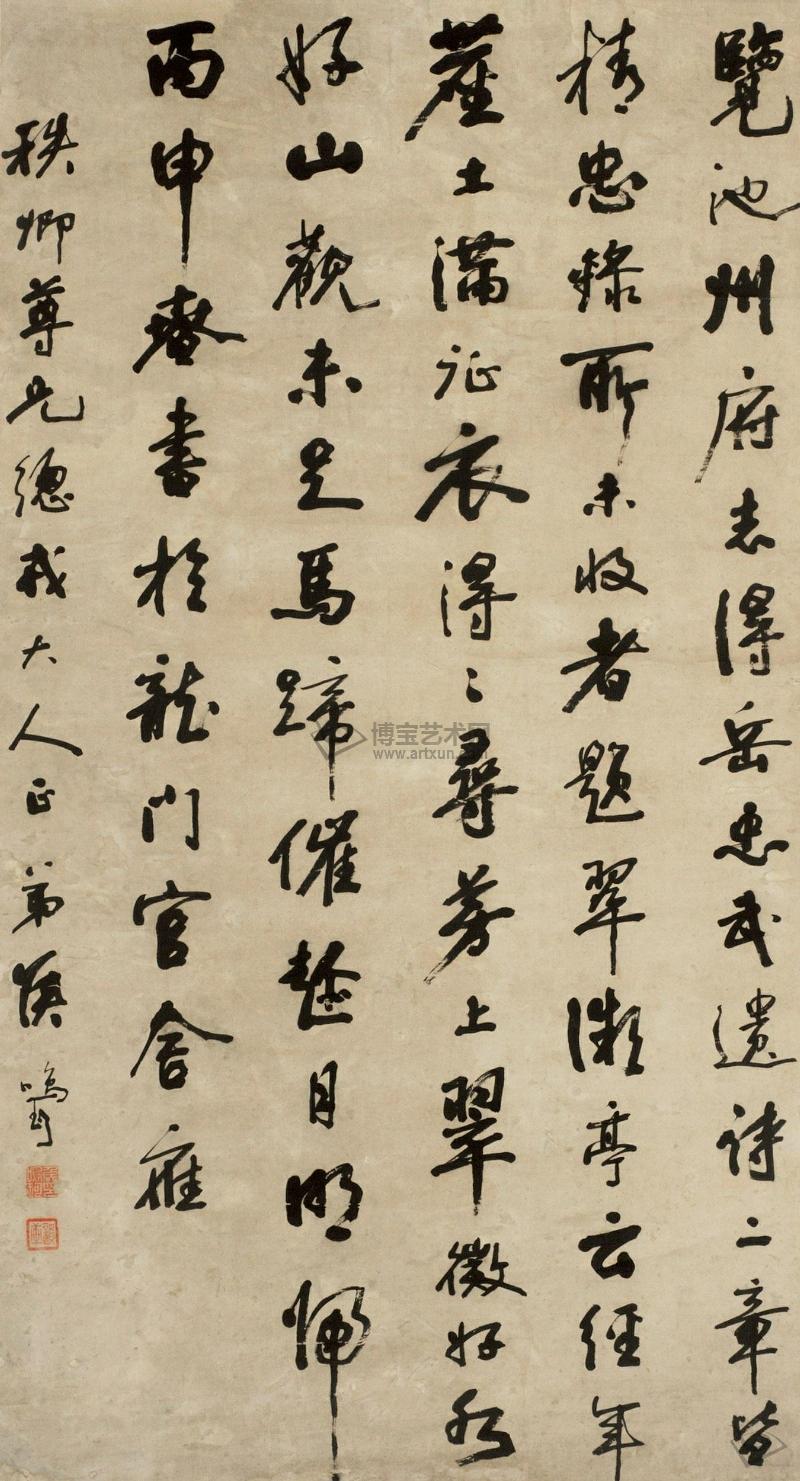 覽池州府志得岳忠武遺詩二章皆
精忠錄所未收者題翠微亭云經年
塵土滿征衣得〻尋芳上翠微好水
好山觀未足馬蹄催趁月明歸
丙申春書於龍門官舍應
秩卿尊兄總戎大人正弟侯
博宝艺术网
www.artxun.